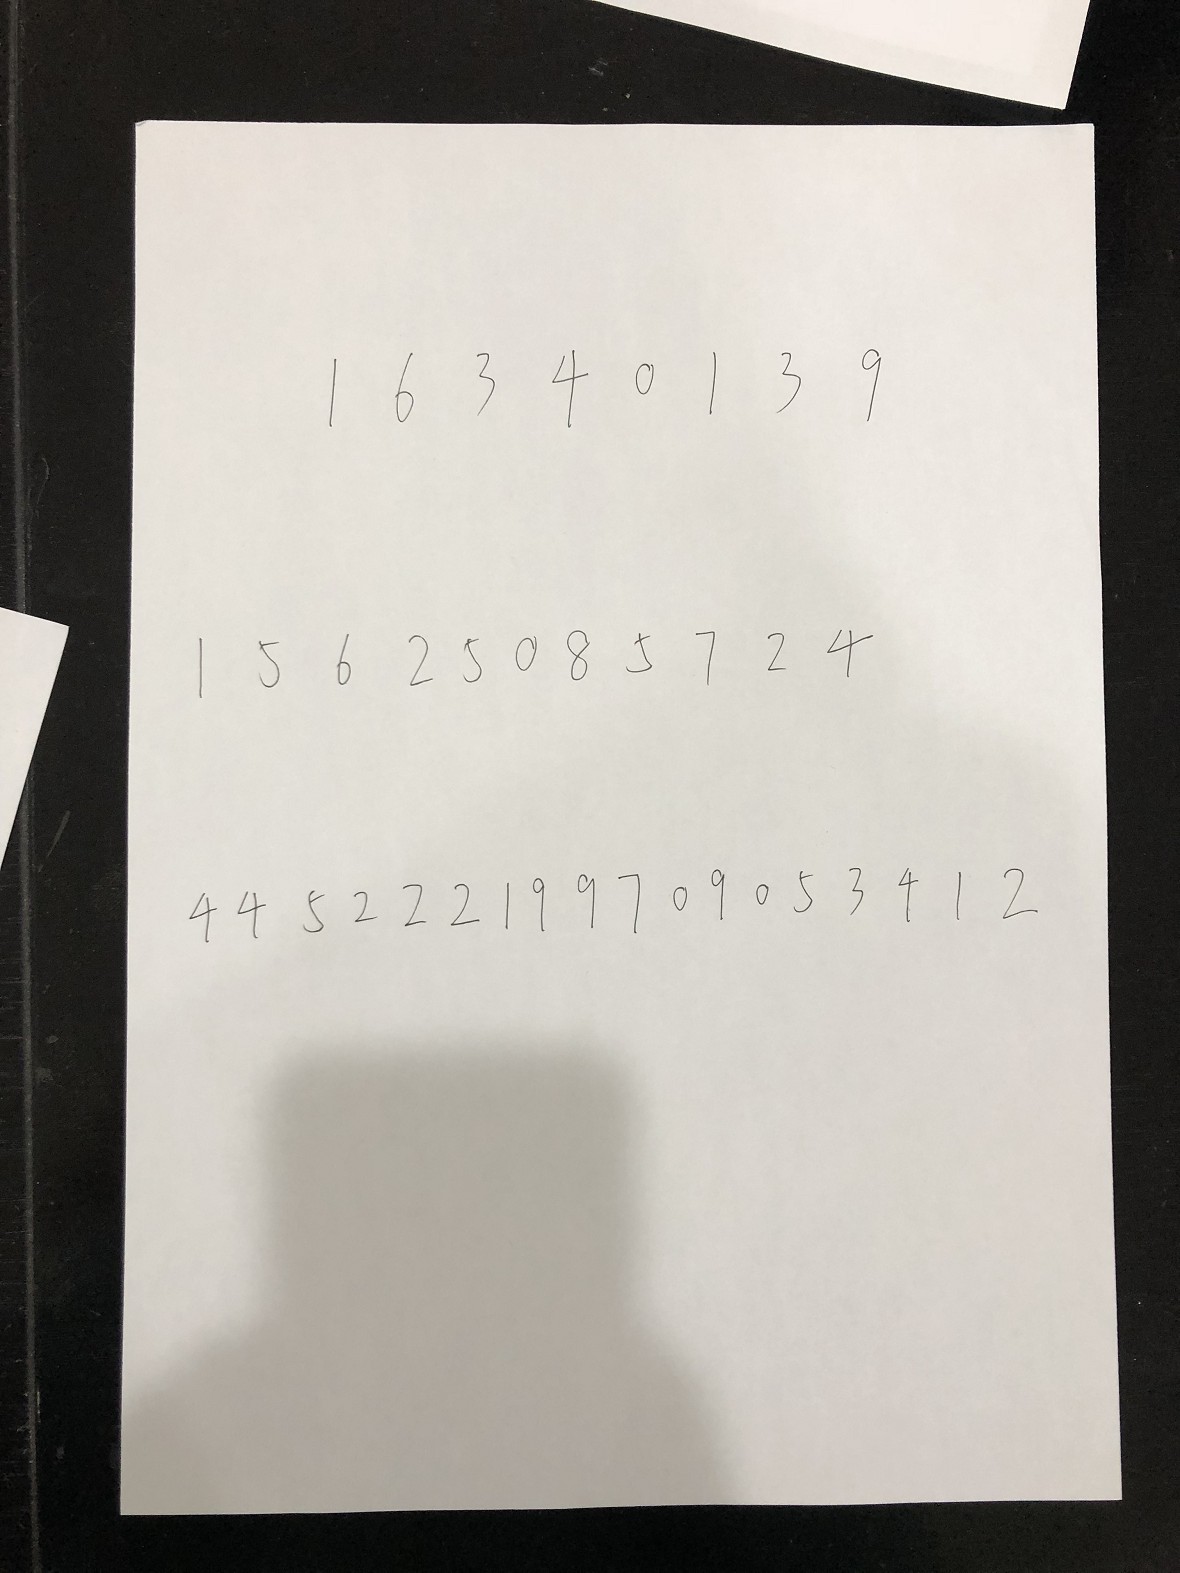 1 6 3 4 0 1 3 9
1 5 6 2 5 0 8 5 7 2 4
4 4 5 2 2 2 1 9 9 7 0 9 0 5 3 4 1 2